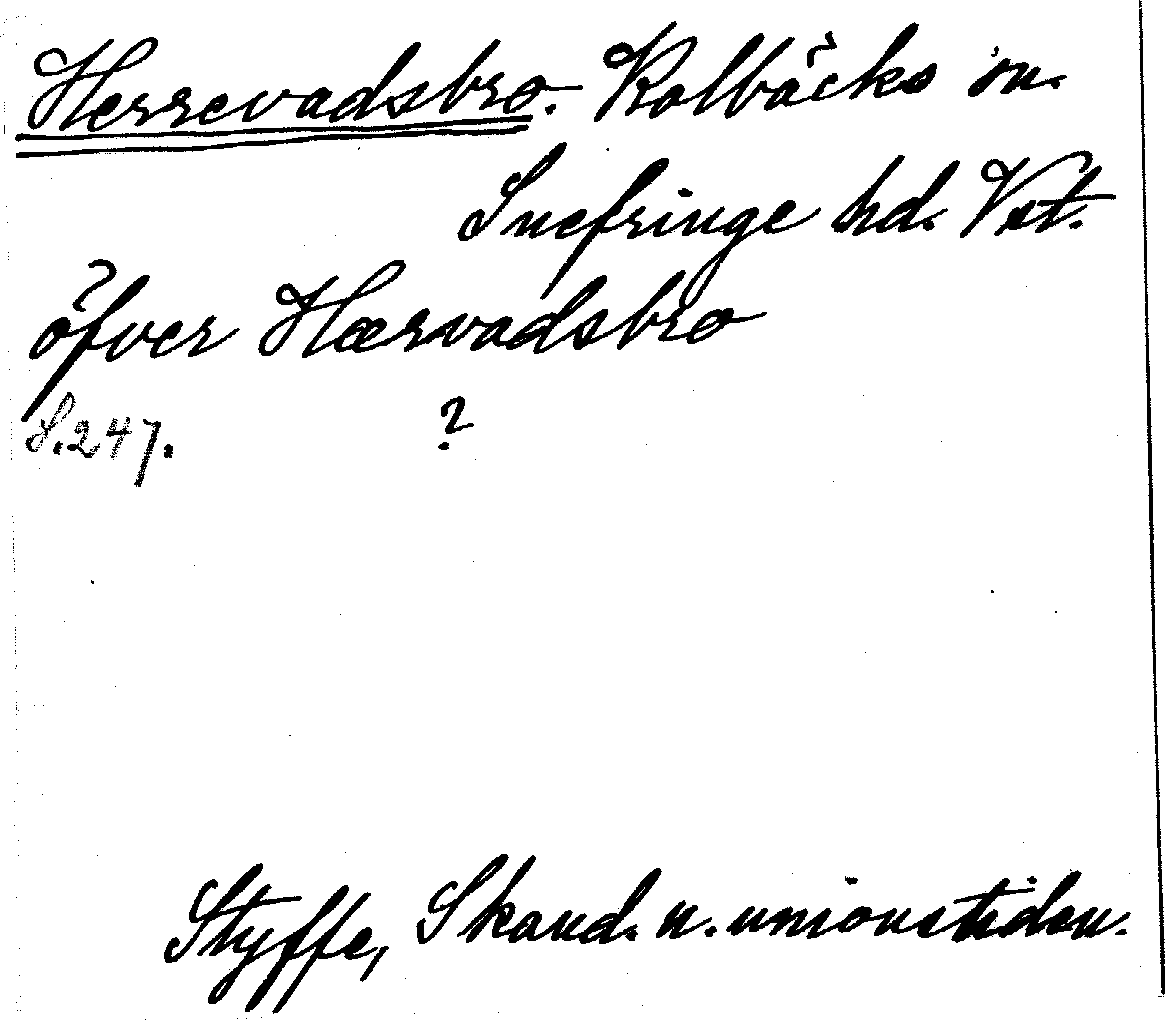 Herrevadsbro. Kolbäcks sn.
Snefringe hd. Vstm.
öfver Hærvadsbro
S. 247. ?
Styffe, Skand. u. unionstiden.